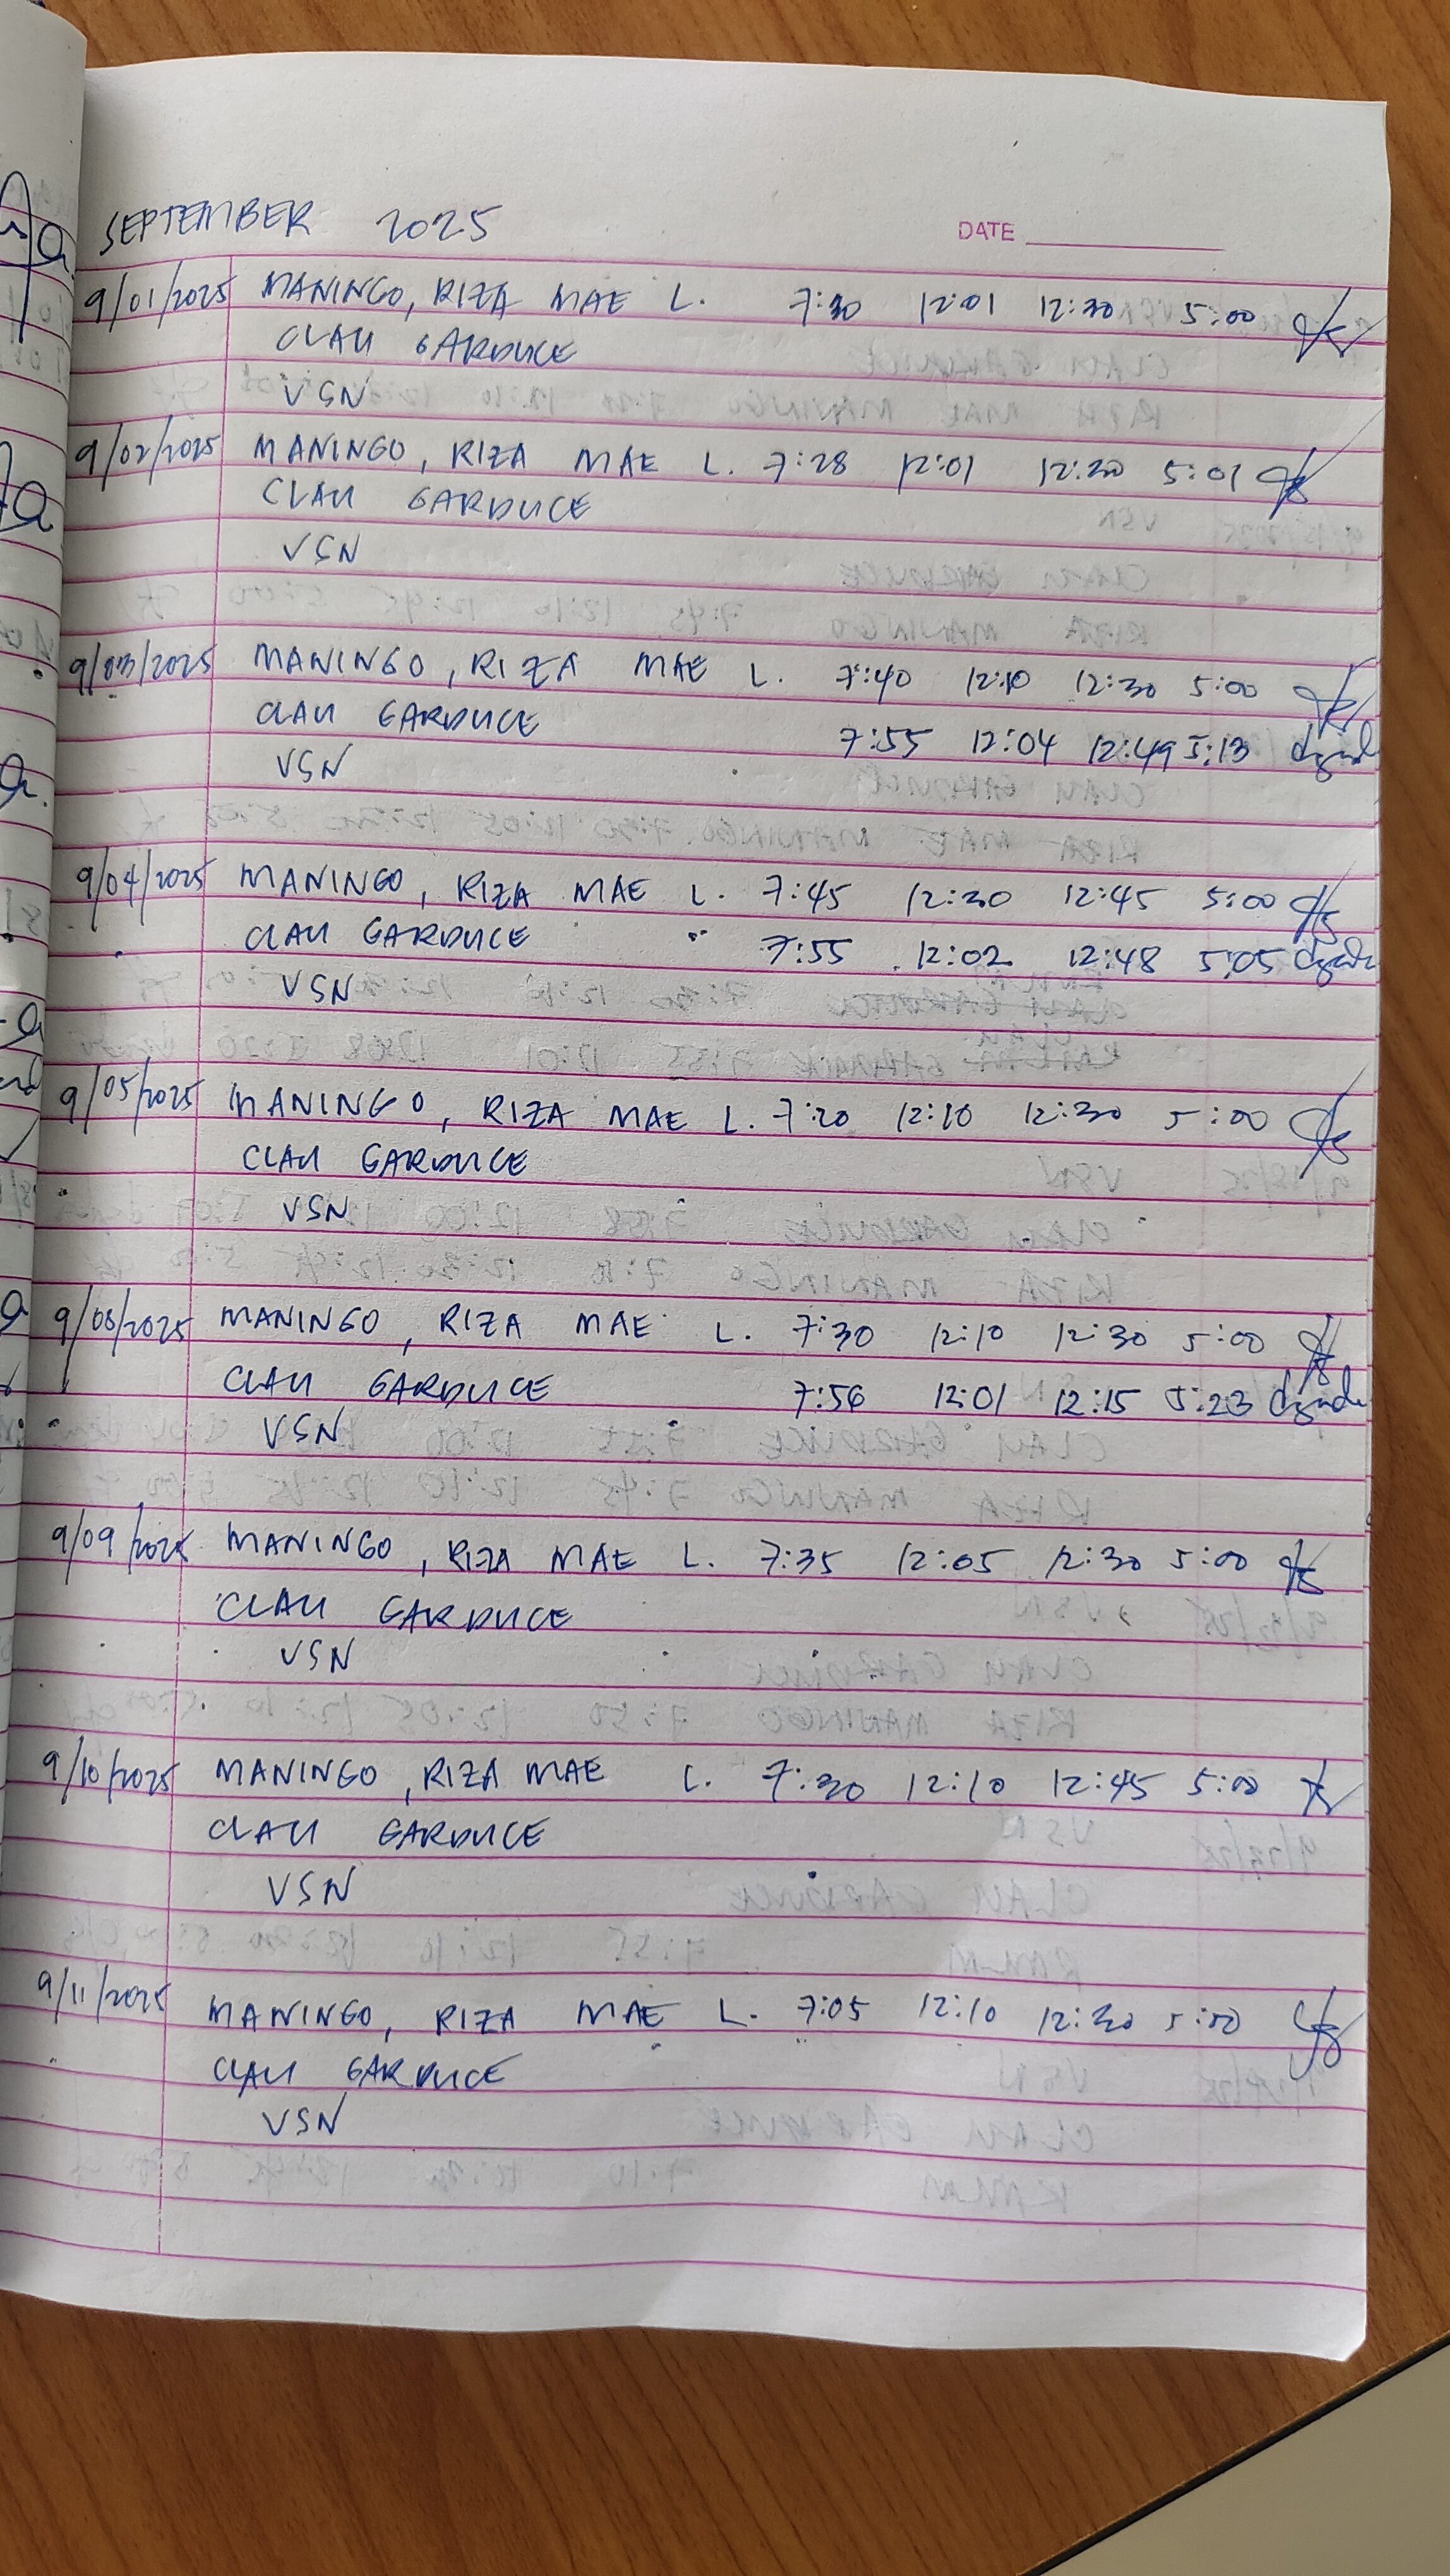 SEPTEMBER 2025
DATE
9/01/2025 MANINGO, RIZA MAE L. 7:30 12:01 12:30 5:00
CLAU GARDUCE
VSN
9/02/2025 MANINGO, RIZA MAE L. 7:28 12:01 12:30 5:01
CLAU GARDUCE
VSN
9/03/2025 MANINGO, RIZA MAE L. 7:40 12:10 12:30 5:00
CLAU GARDUCE 7:55 12:04 12:49 5:13
VSN
9/04/2025 MANINGO, RIZA MAE L. 7:45 12:30 12:45 5:00
CLAU GARDUCE 7:55 12:02 12:48 5:05
VSN
9/05/2025 MANINGO, RIZA MAE L. 7:20 12:10 12:30 5:00
CLAU GARDUCE
VSN
9/08/2025 MANINGO, RIZA MAE L. 7:30 12:10 12:30 5:00
CLAU GARDUCE 7:56 12:01 12:15 5:23
VSN
9/09/2025 MANINGO, RIZA MAE L. 7:35 12:05 12:30 5:00
CLAU GARDUCE
VSN
9/10/2025 MANINGO, RIZA MAE L. 7:30 12:10 12:45 5:00
CLAU GARDUCE
VSN
9/11/2025 MANINGO, RIZA MAE L. 7:05 12:10 12:30 5:00
CLAU GARDUCE
VSN